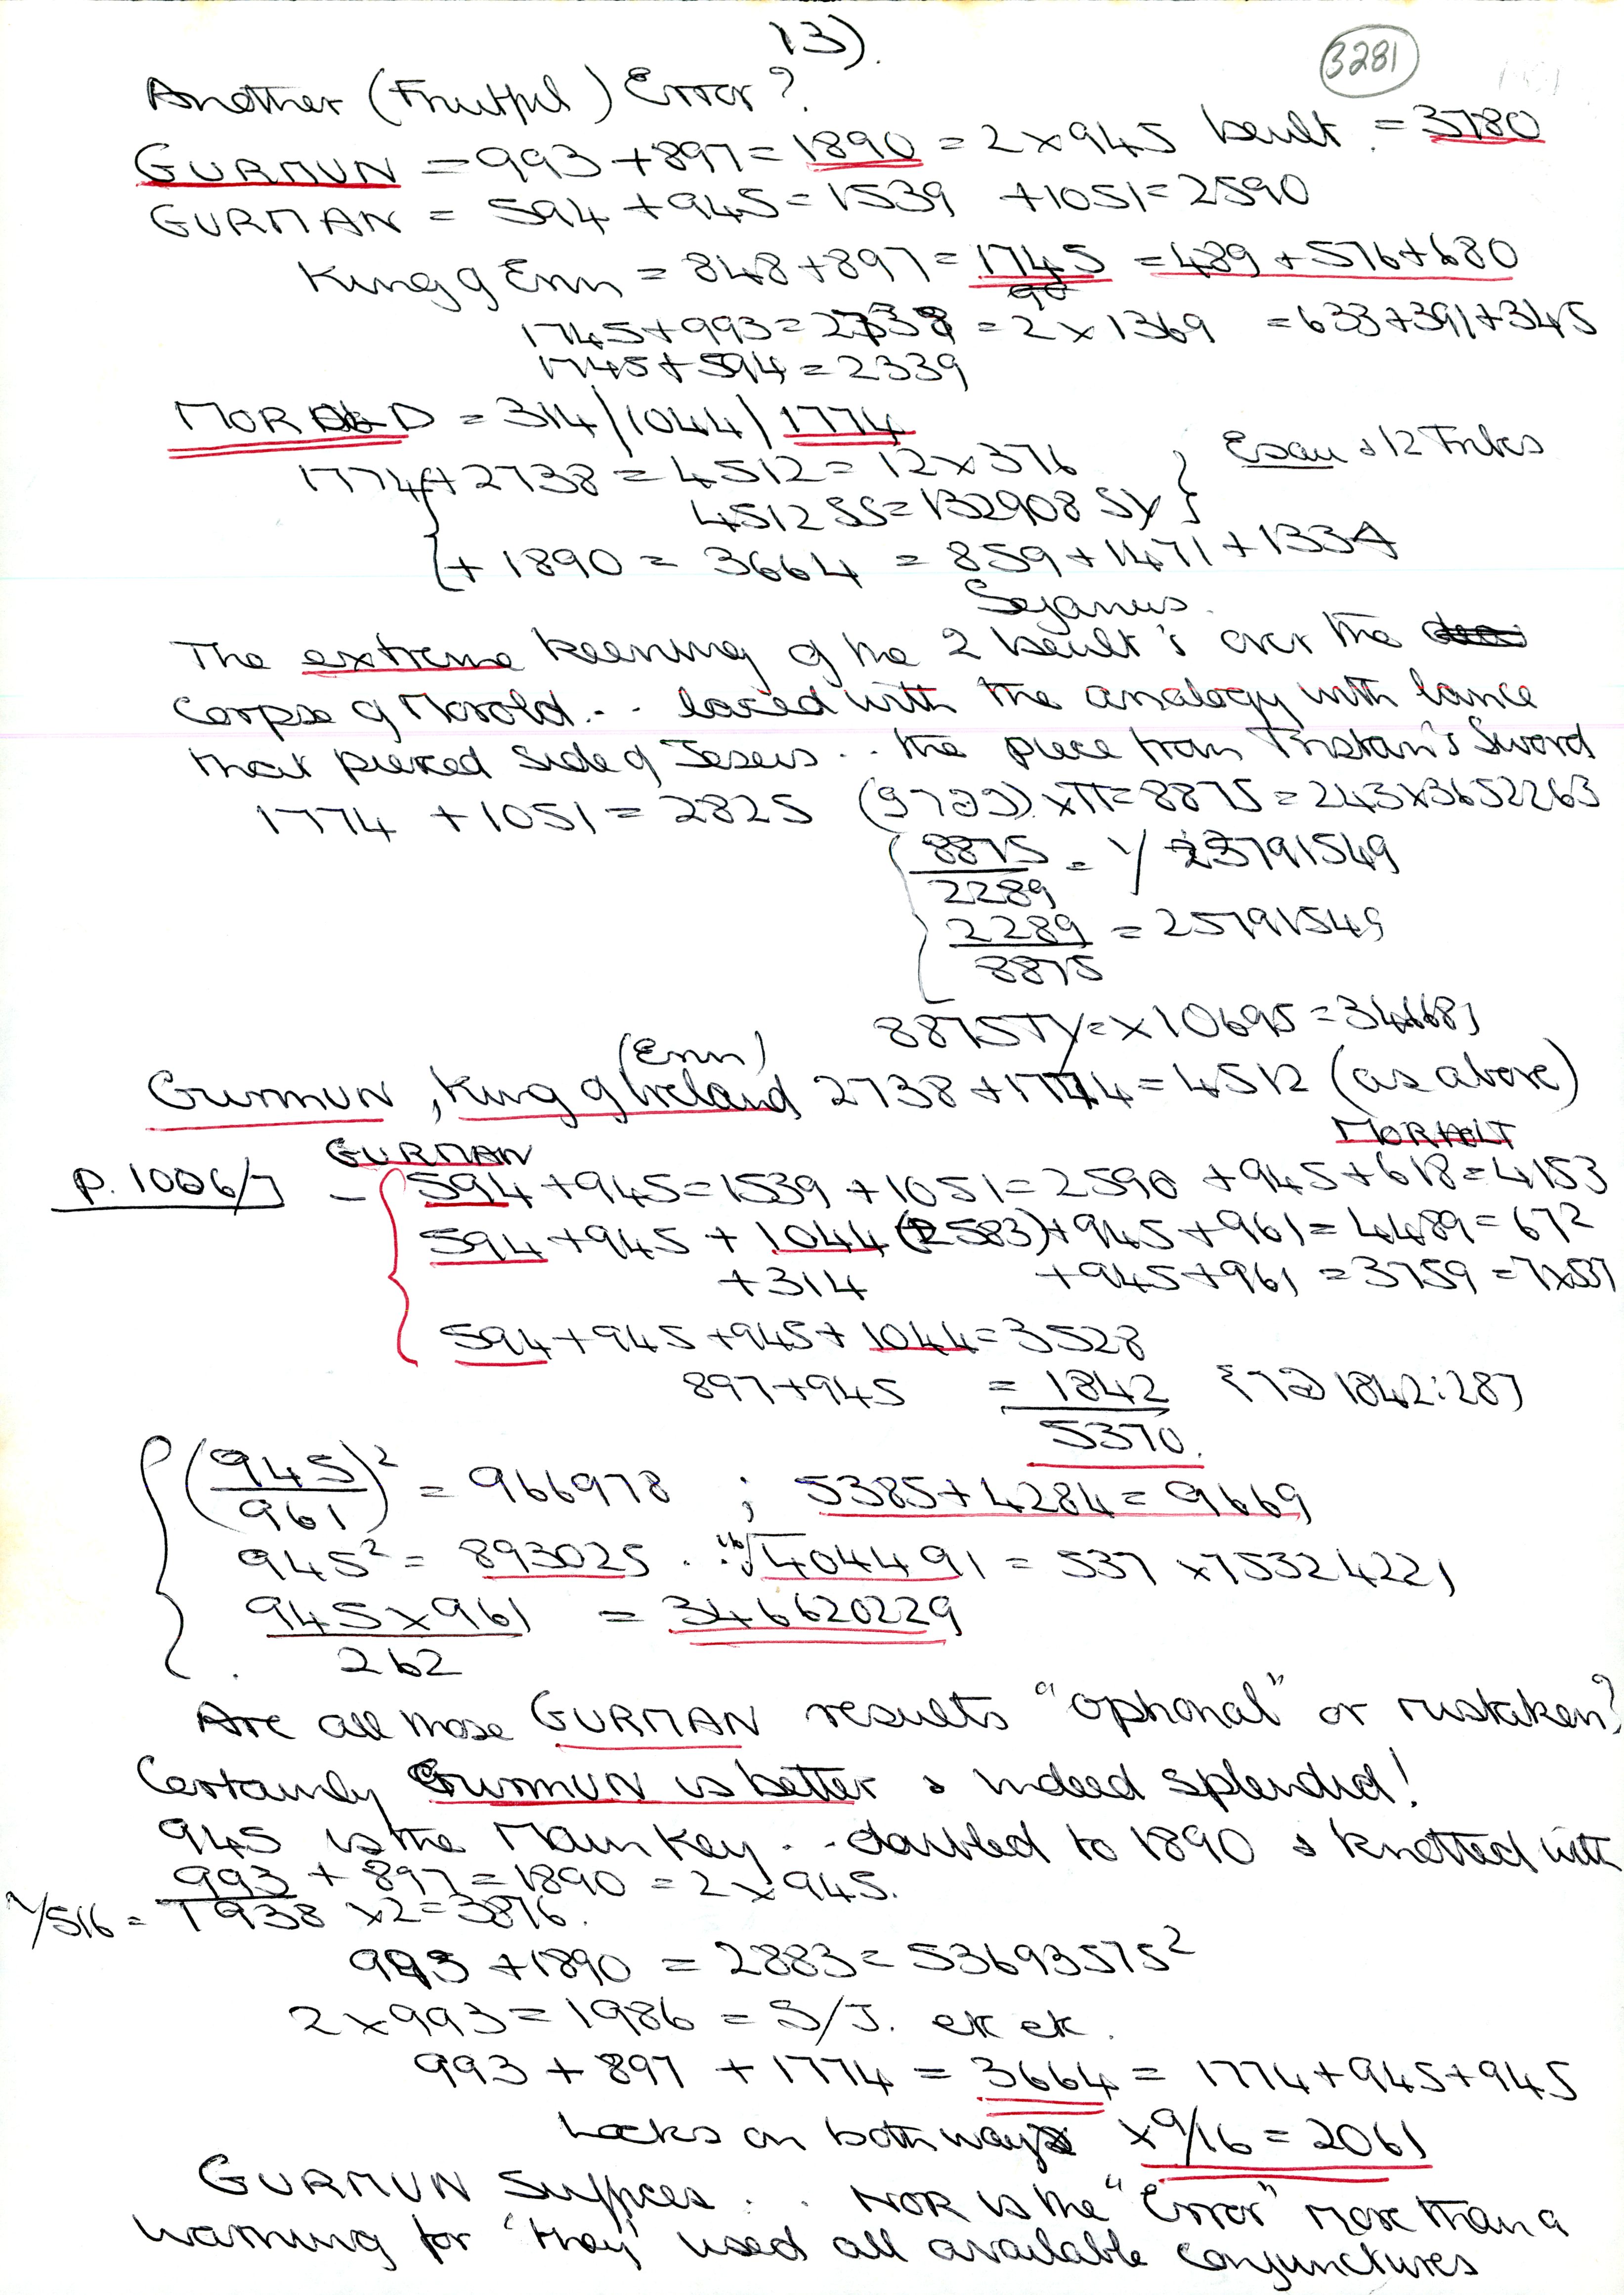 13).
3281
Another (Fruitful) Error?
GURMUN = 993 + 897 = 1890 = 2 x 945 Iseult. = 3780
GURMAN = 594 + 945 = 1539 + 1051 = 2590
King of Erin = 848 + 897 = 1745 = 489 + 576 + 680
1745 + 993 = 2738 = 2 x 1369 = 633 + 391 + 345
1745 + 594 = 2339
MOROLD = 314 / 1044 / 1774
1774 + 2738 = 4512 = 12 x 376 } Esau & 12 Tribes
4512 SS = 132908 SY }
{ + 1890 = 3664 = 859 + 1471 + 1334
Sejanus.
The extreme keening of the 2 Iseult's over the
Corpse of Morold... laced with the analogy with lance
that pierced side of Jesus.. the piece from Tristan's Sword
1774 + 1051 = 2825 x π = 8875 = 243 x 3652263
8875 / 2289 = 1/
2289 / 8875 = 25791549
8875 TY = x 10695 =
(Erin)
Gurmun, King of Ireland 2738 + 1774 = 4512 (as above)
GURMAN MORHOLT
P. 1006/7 - { 594 + 945 = 1539 + 1051 = 2590 + 945 + 618 = 4153
594 + 945 + 1044 (2583) + 945 + 961 = 4489 = 67²
+ 314 + 945 + 961 = 3759 = 7 x 537
594 + 945 + 945 + 1044 = 3528
897 + 945 = 1842 1842:287
5370.
(945/961)² = 966978 ; 5385 + 4284 = 9669
945² = 893025 . √4044491 = 537 x 75324221
945 x 961 / 262 = 346620229
Are all those GURMAN results "optional" or mistaken?
Certainly Gurmun is better & indeed splendid!
945 is the Main Key... doubled to 1890 & knotted with
993 + 897 = 1890 = 2 x 945.
1/516 = 1938 x 2 = 3876.
993 + 1890 = 2883 = 53693575²
2 x 993 = 1986 = S/J. etc etc.
993 + 897 + 1774 = 3664 = 1774 + 945 + 945
Locks on both ways x 9/16 = 2061
GURMUN Suffices... NOR is the "Error" more than a
warning for 'they' used all available conjunctures